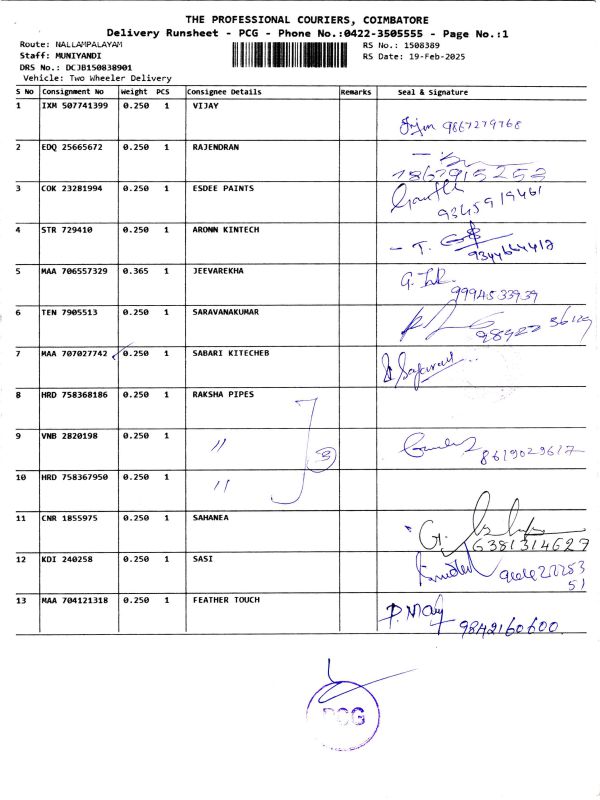 THE PROFESSIONAL COURIERS, COIMBATORE
Delivery Runsheet - PCG - Phone No.:0422-3505555 - Page No.:1
Route: NALLAMPALAYAM RS No.: 1508389
Staff: MUNIYANDI RS Date: 19-Feb-2025
DRS No.: DCJB150838901
Vehicle: Two Wheeler Delivery
S No Consignment No Weight PCS Consignee Details Remarks Seal & Signature
1 IXM 507741399 0.250 1 VIJAY
9867279768
2 EDQ 25665672 0.250 1 RAJENDRAN
7867915252
3 COK 23281994 0.250 1 ESDEE PAINTS
9345919461
4 STR 729410 0.250 1 ARONN KINTECH
9344664412
5 MAA 706557329 0.365 1 JEEVAREKHA
9994533939
6 TEN 7905513 0.250 1 SARAVANAKUMAR
7 MAA 707027742 0.250 1 SABARI KITECHEB
8 HRD 758368186 0.250 1 RAKSHA PIPES
9 VNB 2820198 0.250 1 " 3
8619029617
10 HRD 758367950 0.250 1 "
11 CNR 1855975 0.250 1 SAHANEA
G. 6381314627
12 KDI 240258 0.250 1 SASI
51
13 MAA 704121318 0.250 1 FEATHER TOUCH
P. Mary 9842160600.
PCG